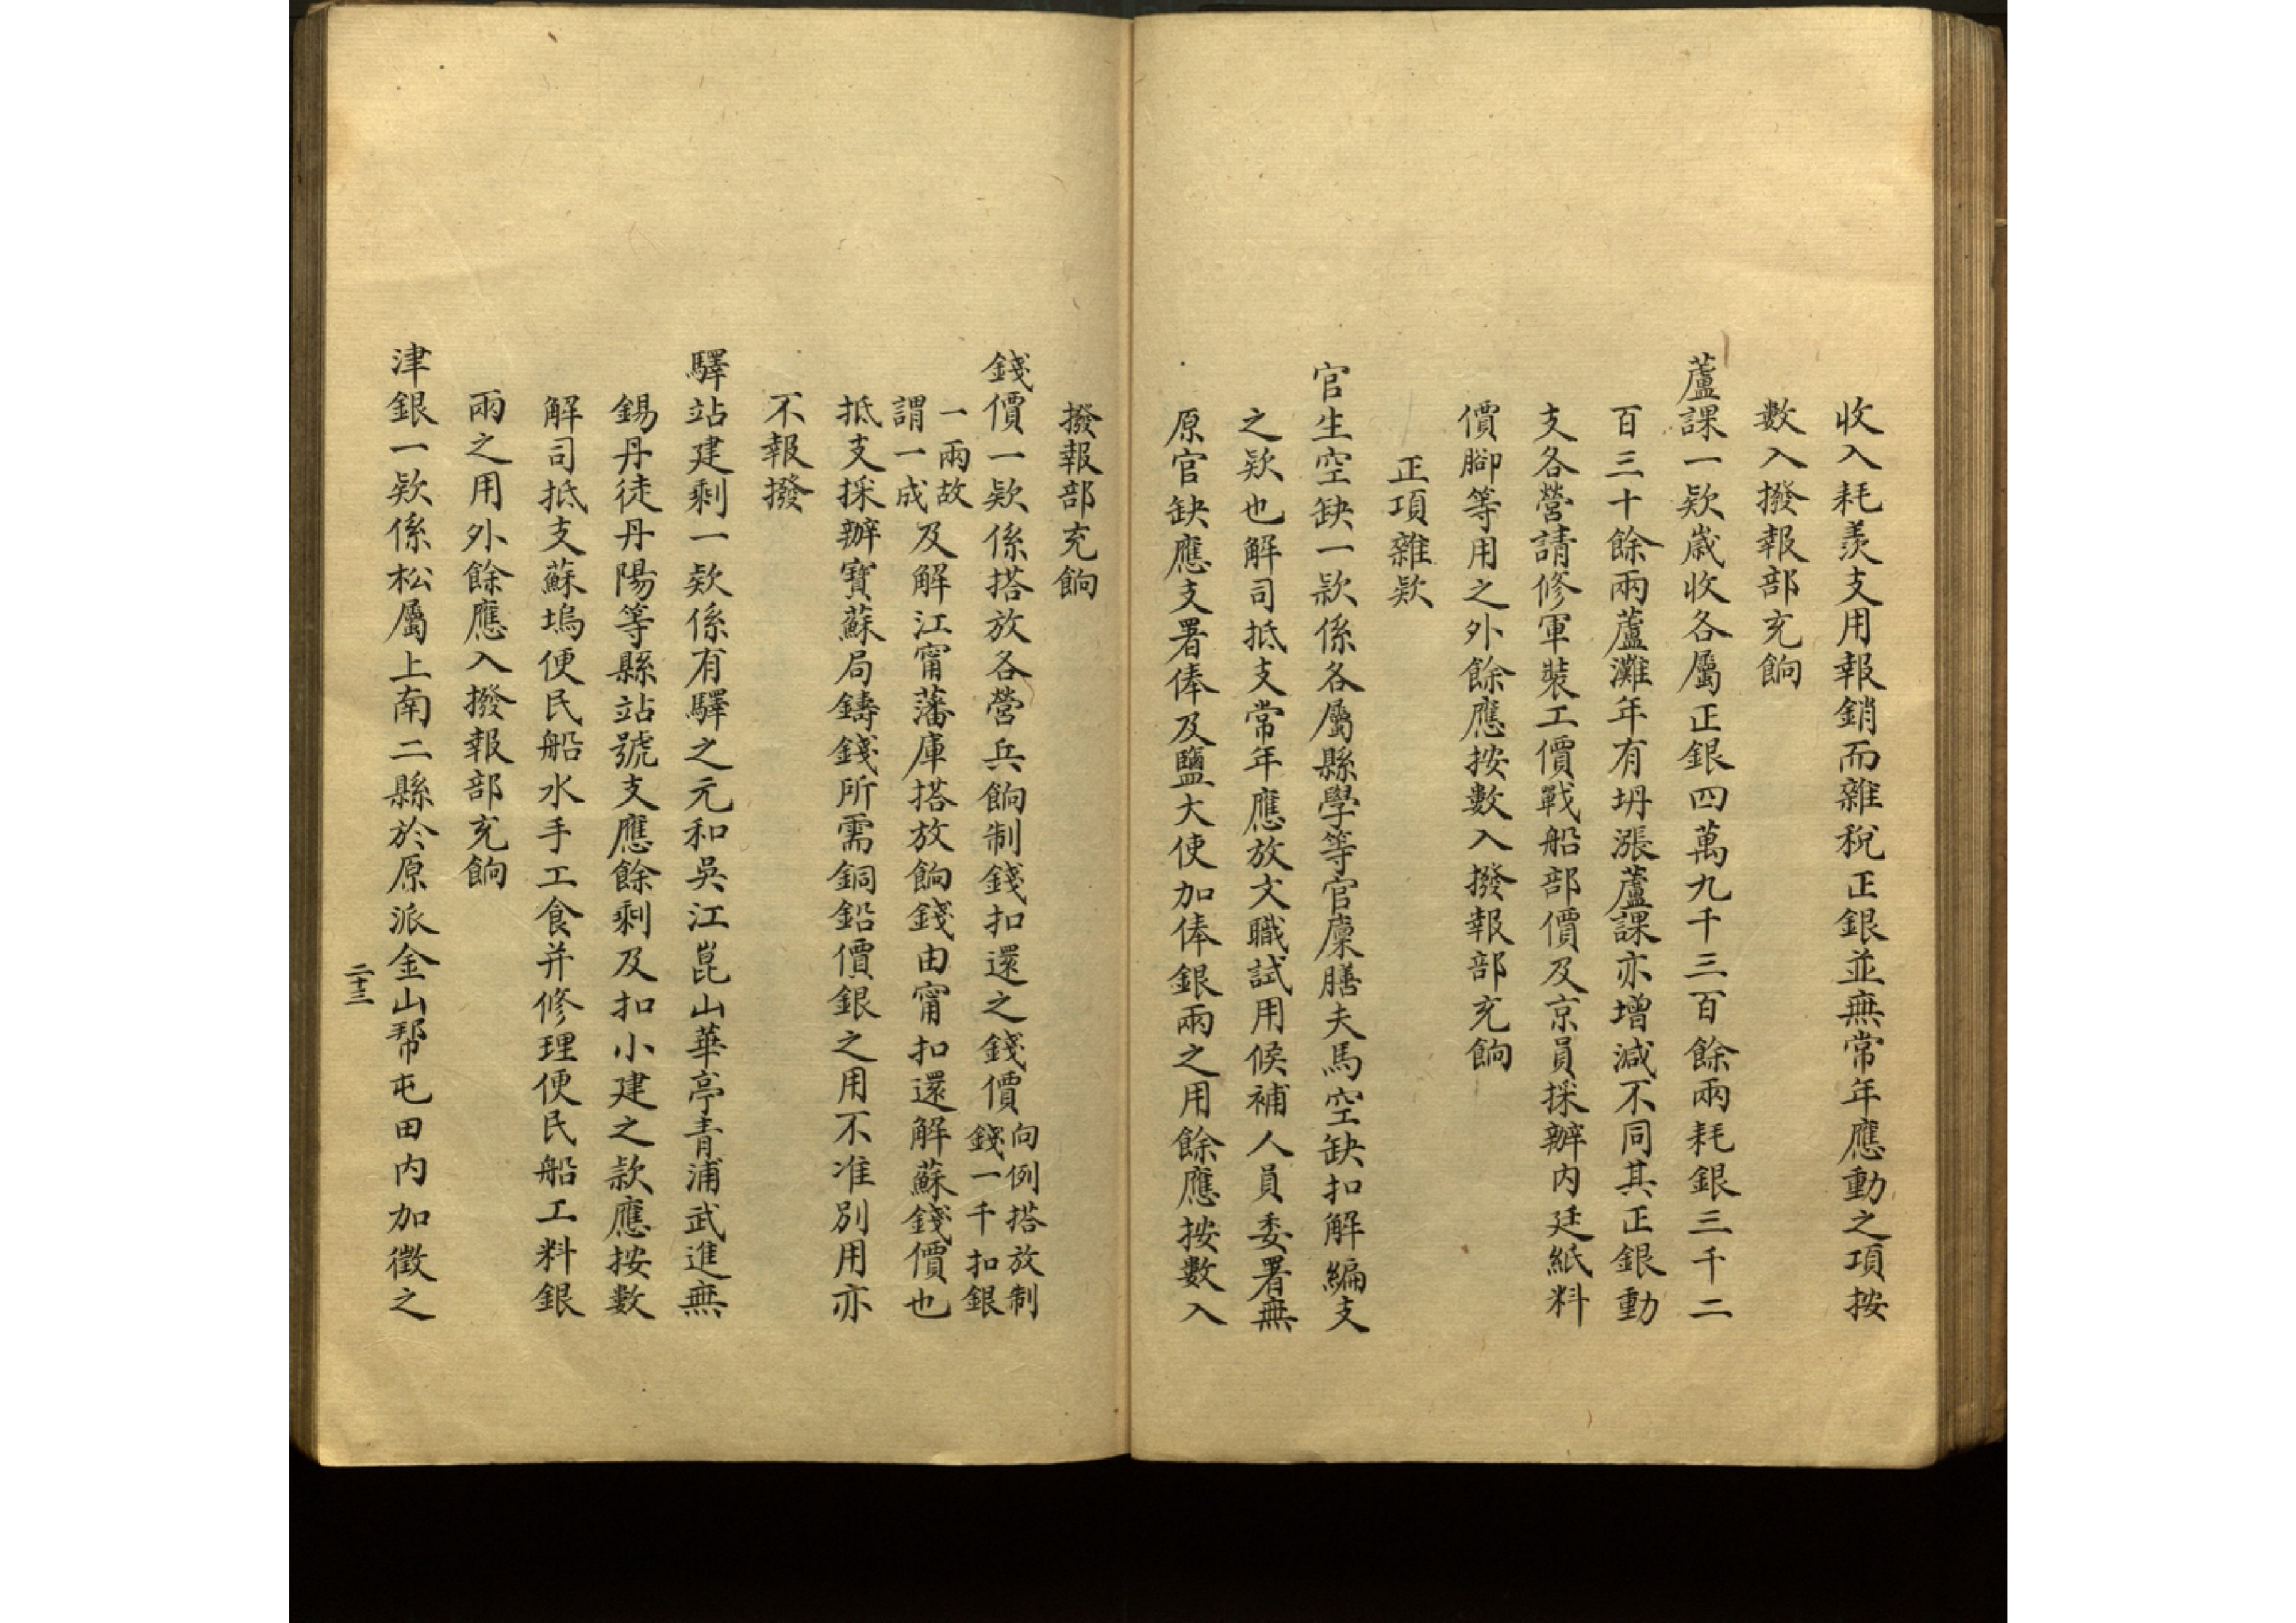 收入耗羨支用報銷而雜稅正銀並無常年應動之項按
數入撥報部充餉
蘆課一欵歲收各屬正銀四萬九千三百餘兩耗銀三千二
百三十餘兩蘆灘年有坍漲蘆課亦增減不同其正銀動
支各營請修軍裝工價戰船部價及京員採辦內廷紙料
價腳等用之外餘應按數入撥報部充餉
正項雜欵
官生空缺一款係各屬縣學等官廩膳夫馬空缺扣解編支
之欵也解司抵支常年應放文職試用候補人員委署無
原官缺應支署俸及鹽大使加俸銀兩之用餘應按數入
撥報部充餉
錢價一欵係搭放各營兵餉制錢扣還之錢價向例搭放制
錢一千扣銀
一兩故
謂一成及解江甯藩庫搭放餉錢由甯扣還解蘇錢價也
抵支採辦寶蘇局鑄錢所需銅鉛價銀之用不准別用亦
不報撥
驛站建剩一欵係有驛之元和吳江崑山華亭青浦武進無
錫丹徒丹陽等縣站號支應餘剩及扣小建之款應按數
解司抵支蘇塢便民船水手工食并修理便民船工料銀
兩之用外餘應入撥報部充餉
津銀一欵係松屬上南二縣於原派金山幫屯田内加徵之
二十三